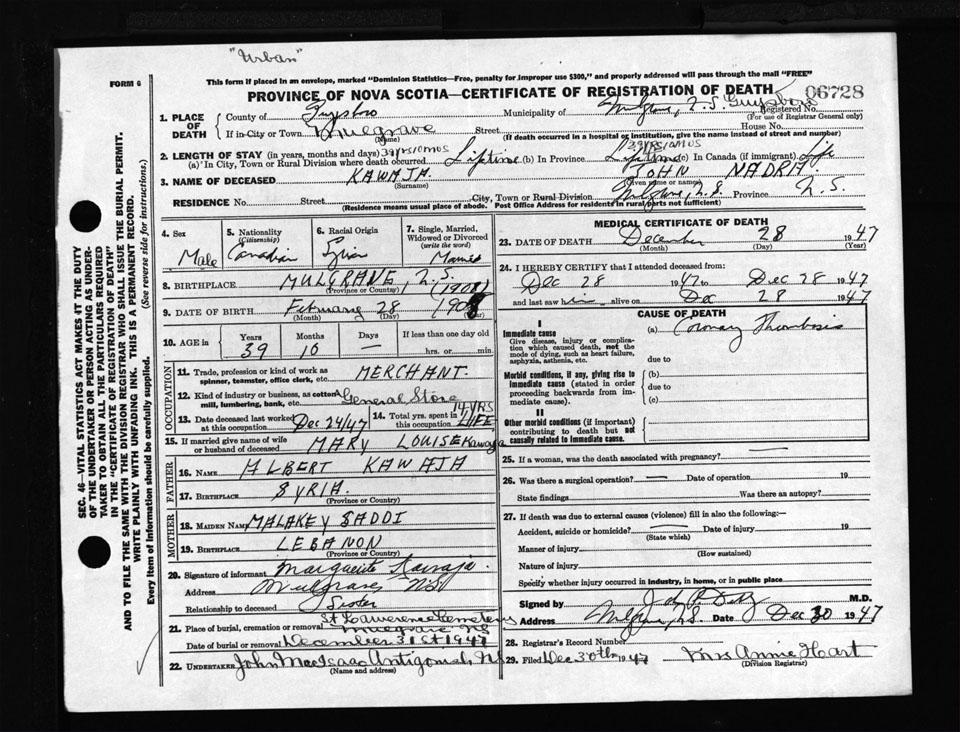 "Urban"
FORM 6
This form if placed in an envelope, marked "Dominion Statistics—Free, penalty for improper use $300," and properly addressed will pass through the mail "FREE"
PROVINCE OF NOVA SCOTIA—CERTIFICATE OF REGISTRATION OF DEATH
06728
1. PLACE OF DEATH
County of Guysboro
Municipality of Mulgrave, N.S. Guysboro
Registered No.
(For use of Registrar General only)
If in City or Town Mulgrave
(Name)
Street
House No.
(If death occurred in a hospital or institution, give the name instead of street and number)
2. LENGTH OF STAY (in years, months and days) 39 yrs 10 mos
39 yrs 10 mos
(a) In City, Town or Rural Division where death occurred Lifetime (b) In Province Lifetime (c) In Canada (if immigrant) Life
3. NAME OF DECEASED KAWAJA JOHN NADRA
(Surname) (Given name or names)
RESIDENCE No. Street City, Town or Rural Division Mulgrave, N.S. Province N.S.
(Residence means usual place of abode. Post Office Address for residents in rural parts not sufficient)
4. Sex
Male
5. Nationality
(Citizenship)
Canadian
6. Racial Origin
Syrian
7. Single, Married, Widowed or Divorced
(write the word)
Married
8. BIRTHPLACE MULGRAVE, N.S.
(Province or Country) (1908)
9. DATE OF BIRTH February 28 1908
(Month) (Day) (Year)
10. AGE in
Years Months Days If less than one day old
39 10 — hrs. or min.
OCCUPATION
11. Trade, profession or kind of work as spinner, teamster, office clerk, etc. MERCHANT.
12. Kind of industry or business, as cotton mill, lumbering, bank, etc. General Store
13. Date deceased last worked at this occupation Dec 24/47
14. Total yrs. spent in this occupation 14 YRS LIFE
15. If married give name of wife or husband of deceased MARY LOUISE Kawaja
FATHER
16. Name ALBERT KAWAJA
17. Birthplace SYRIA.
(Province or Country)
MOTHER
18. Maiden Name MALAKEY SADDI
19. Birthplace LEBANON
(Province or Country)
20. Signature of informant Marguerite Kawaja.
Address Mulgrave, NS
Relationship to deceased Sister
21. Place of burial, cremation or removal St Lawrence Cemetery
Mulgrave NS
Date of burial or removal December 31st 1947
22. UNDERTAKER John MacIsaac Antigonish NS
(Name and address)
MEDICAL CERTIFICATE OF DEATH
23. DATE OF DEATH December 28 1947
(Month) (Day) (Year)
24. I HEREBY CERTIFY that I attended deceased from:
Dec 28 1947 to Dec 28 1947
and last saw him alive on Dec 28 1947
CAUSE OF DEATH
I
Immediate cause
Give disease, injury or complication which caused death, not the mode of dying, such as heart failure, asphyxia, asthenia, etc.
(a) Coronary Thrombosis
due to
Morbid conditions, if any, giving rise to immediate cause (stated in order proceeding backwards from immediate cause).
(b)
due to
(c)
II
Other morbid conditions (if important) contributing to death but not causally related to immediate cause.
25. If a woman, was the death associated with pregnancy? —
26. Was there a surgical operation? — Date of operation 19
State findings Was there an autopsy?
27. If death was due to external causes (violence) fill in also the following:—
Accident, suicide or homicide? — Date of injury 19
(State which)
Manner of injury
(How sustained)
Nature of injury
Specify whether injury occurred in industry, in home, or in public place
Signed by M.D.
Address Mulgrave, N.S. Date Dec 30 1947
28. Registrar's Record Number
29. Filed Dec 30th 1947 Mrs Annie Hart
(Division Registrar)
SEC. 46—VITAL STATISTICS ACT MAKES IT THE DUTY
OF THE UNDERTAKER OR PERSON ACTING AS UNDER-
TAKER TO OBTAIN ALL THE PARTICULARS REQUIRED
IN THE "CERTIFICATE OF REGISTRATION OF DEATH"
AND TO FILE THE SAME WITH THE DIVISION REGISTRAR WHO SHALL ISSUE THE BURIAL PERMIT.
WRITE PLAINLY WITH UNFADING INK. THIS IS A PERMANENT RECORD.
Every item of information should be carefully supplied. (See reverse side for instructions.)